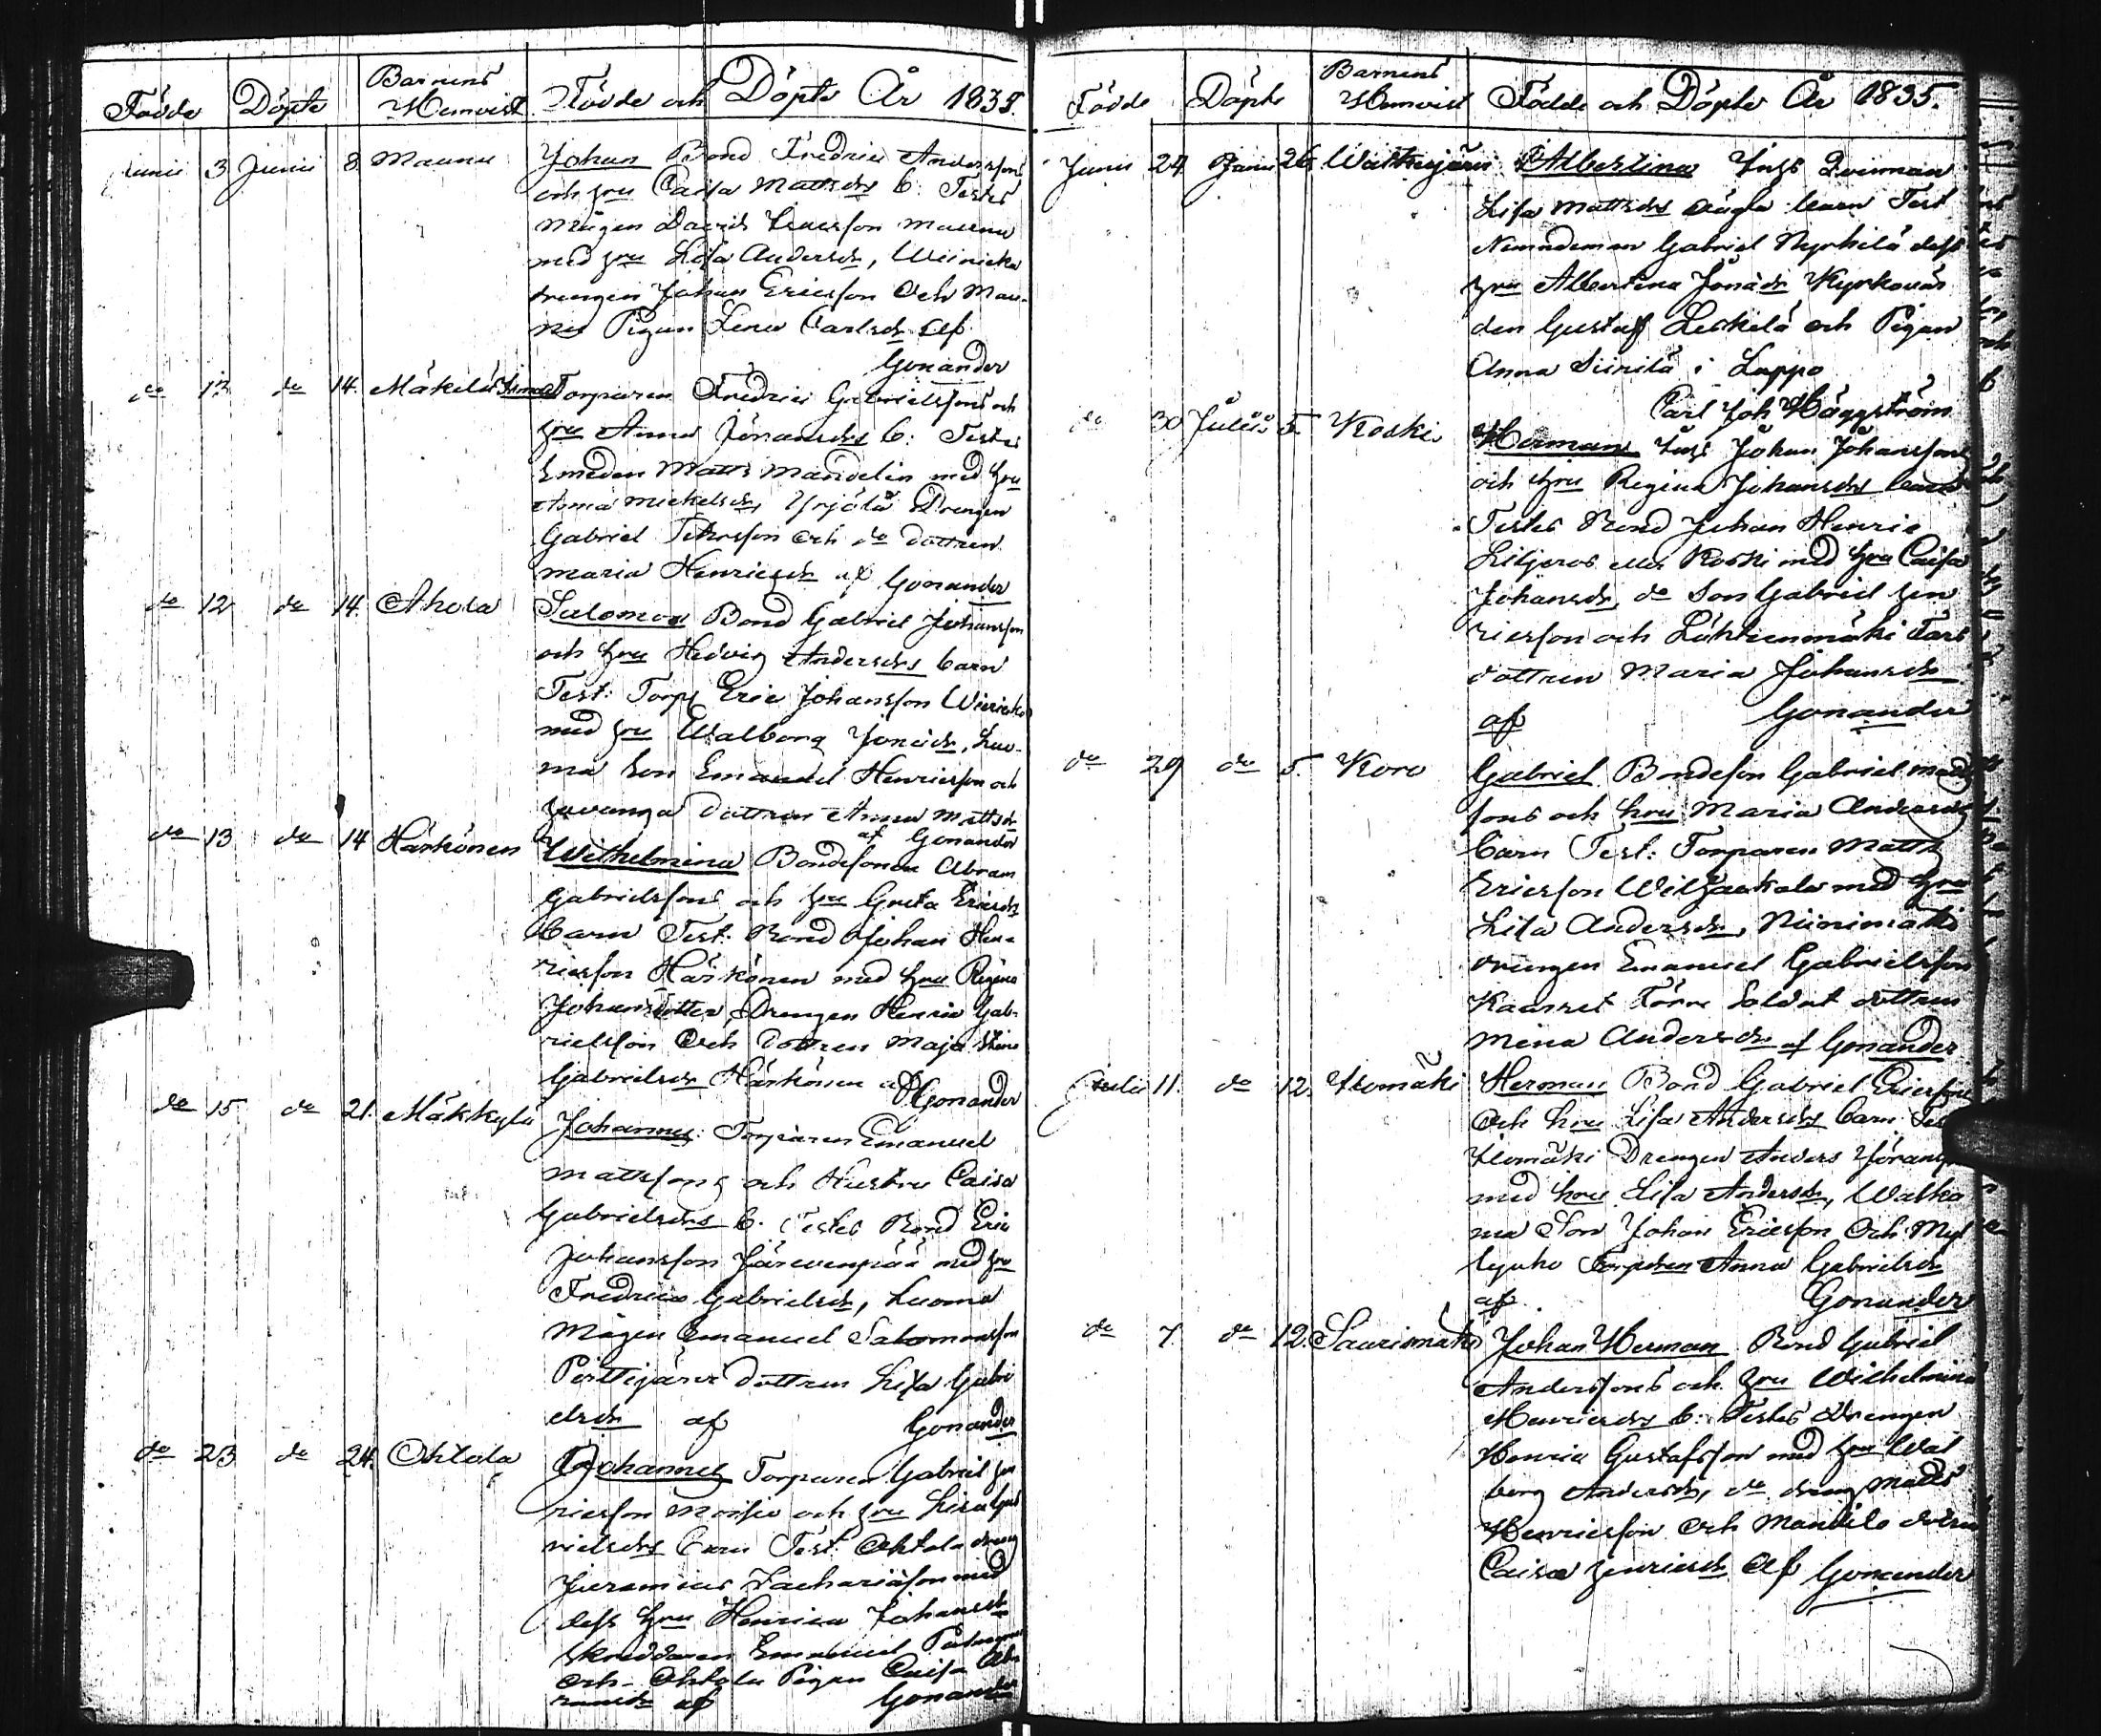 Födde Döpte Barnens Hemvist Födde och Döpte År 1835.
Junii 3 Junii 8 Maunu Johan Bond Fredric Anderssons
och hru Caisa Mattsdrs b: Testes
Mågen David Ericsson Maunu
med hru Lisa Andersdr, Wiinicka
drengen Johan Ericsson Och Mau-
nu Pigan Lena Carlsdr af
Gonander
do 12 do 14. Mäkelä Torparen Fredric Gabrielssons och
hru Anna Jonasdrs b: Testes
Smeden Matts Mandelin med hru
Anna Mickelsdr, Yrjälä Drengen
Gabriel och do dottren
Maria Henricsdr af Gonander
do 12 do 14. Ahola Salomon Bond Gabriel Johansson
och hru Hedvig Andersdrs barn
Test: Torp Eric Johansson
med hru Walborg Jonasdr, Luo-
ma Son Emanuel Henricsson och
dottren Anna Mattsdr
af Gonander
do 13 do 14 Härkönen Wilhelmina Bondesonen Abram
Gabrielssons och hru Greta Ericsdrs
barn Test: Bond Johan Hen-
ricsson Härkönen med hru Regina
Johansdotter, Drengen Henric Gab-
rielsson Och Dottren Maja Stina
Gabrielsdr Härkönen af Gonander
do 15 do 21. Mäkkylä Johannes: Torparen Emanuel
Mattssons och Hustru Caisa
Gabrielsdrs b. Testes Bond Eric
Johansson Järwenpää med hru
Fredrica Gabrielsdr, Luoma
Mågen Emanuel Salomonsson
Perttijärvi dottren Lisa Gabri
elsdr af Gonander
do 23 do 24. Ohtola Johannes Torparen Gabriel hen
ricsson och hru Lisa Gab
rielsdrs barn Test: Ohtola dreng
Jeremias Zachariasson med
dess hru Henrica Johansdr
Skreddaren Emanuel
och Ohtola Pigan Caisa Abr
hamsdr af Gonander
Födde Döpte Barnens Hemvist Födde och Döpte År 1835.
Junii 24 Junii 26. Albertina Inhs Qvinnan
Lisa Mattsdrs oägta barn Test
Nämndeman Gabriel Nyrhilä dess
hru Albertina Jonasdr Kyrkovär
den Gustaf Leskelä och Pigan
Anna Siirilä i Lappo
Carl Joh Häggström
do 30 Julii 5. Koski Herman Inhs Johan Johanssons
och hru Regina Johansdrs barn
Testes Bond Johan Henric
Liljeros eller Koski med hru Caisa
Johansdr, do Son Gabriel hen
ricsson och Torp
dottren Maria Johansdr
af Gonander
do 29 do 5. Koro Gabriel Bondeson Gabriel Matts
sons och hru Maria Andersdrs
barn Test: Torparen Matts
Ericsson med hru
Lisa Andersdr, Niinimäki
drengen Emanuel Gabrielsson
Soldat dottren
Mina Andersdr af Gonander
Julii 11. do 12. Ilomäki Herman Bond Gabriel Ericssons
Och hru Lisa Andersdrs barn Tes
Ilomäki Drengen Anders
med hru Lisa Andersdr, Walka
ma Son Johan Ericsson Och Myl
Anna Gabrielsdr
af Gonander
do 7. do 12. Saarimäki Johan Herman Bond Gabriel
Anderssons och hru Wilhelmina
Henricsdrs b: Testes Drengen
Henric Gustafsson med hru Wal
borg Andersdr, do dreng Matts
Henricsson Och Mandila dottren
Caisa henricsdr af Gonander